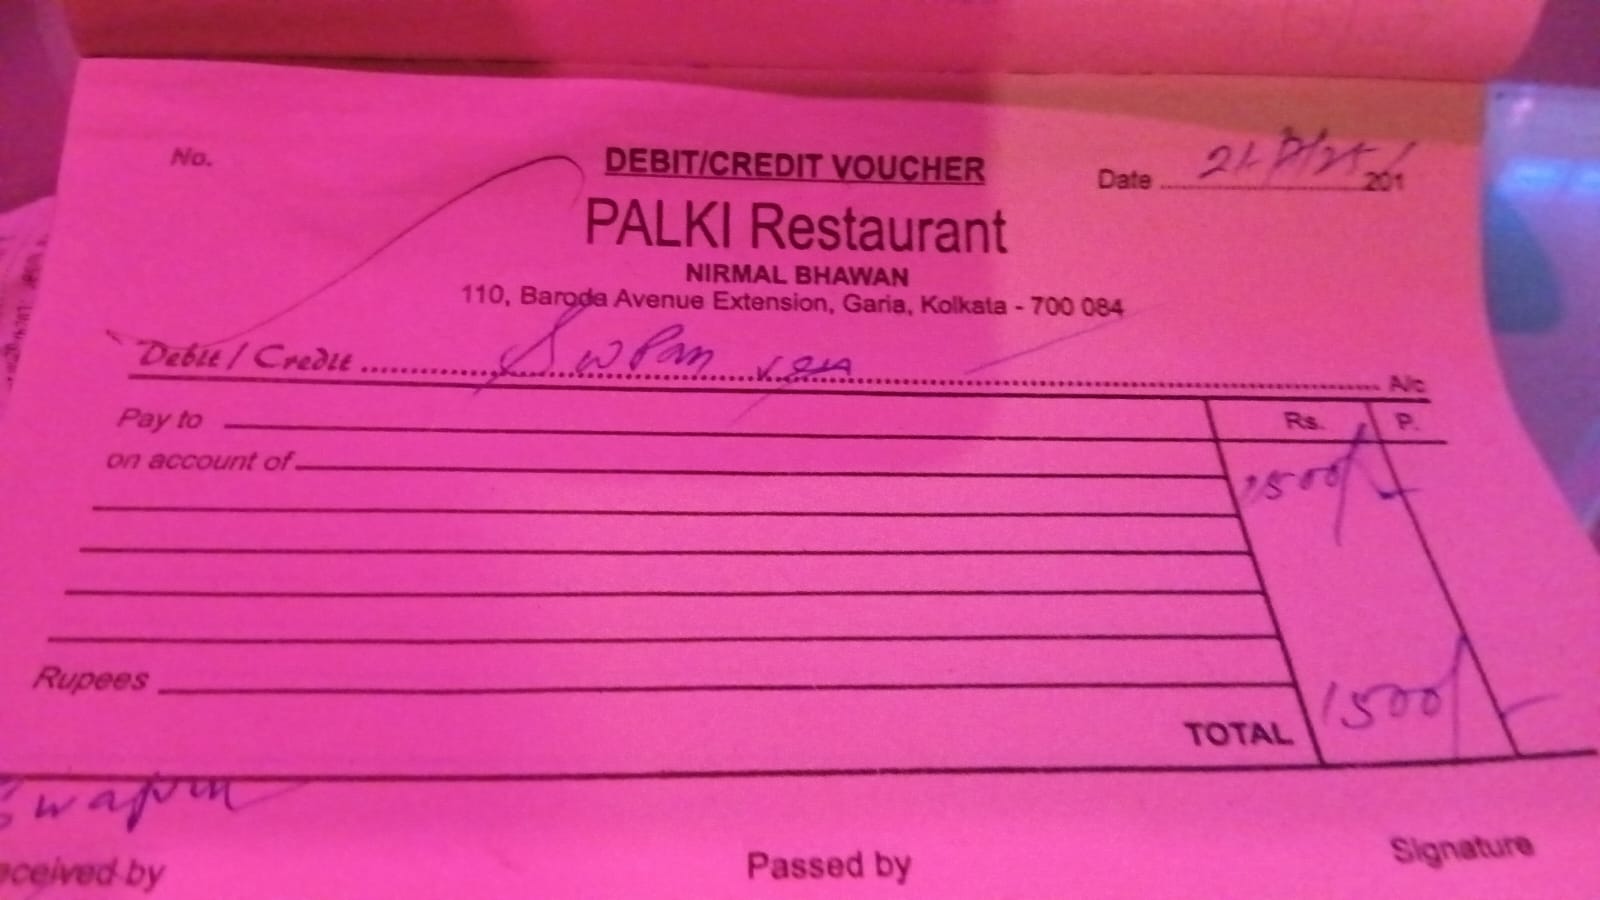 No.
DEBIT/CREDIT VOUCHER
Date 201
PALKI Restaurant
NIRMAL BHAWAN
110, Baroda Avenue Extension, Garia, Kolkata - 700 084
Debit / Credit Swpan A/c
Pay to Rs. P.
on account of
1500/-
Rupees
TOTAL 1500/-
Swapan
eceived by Passed by Signature